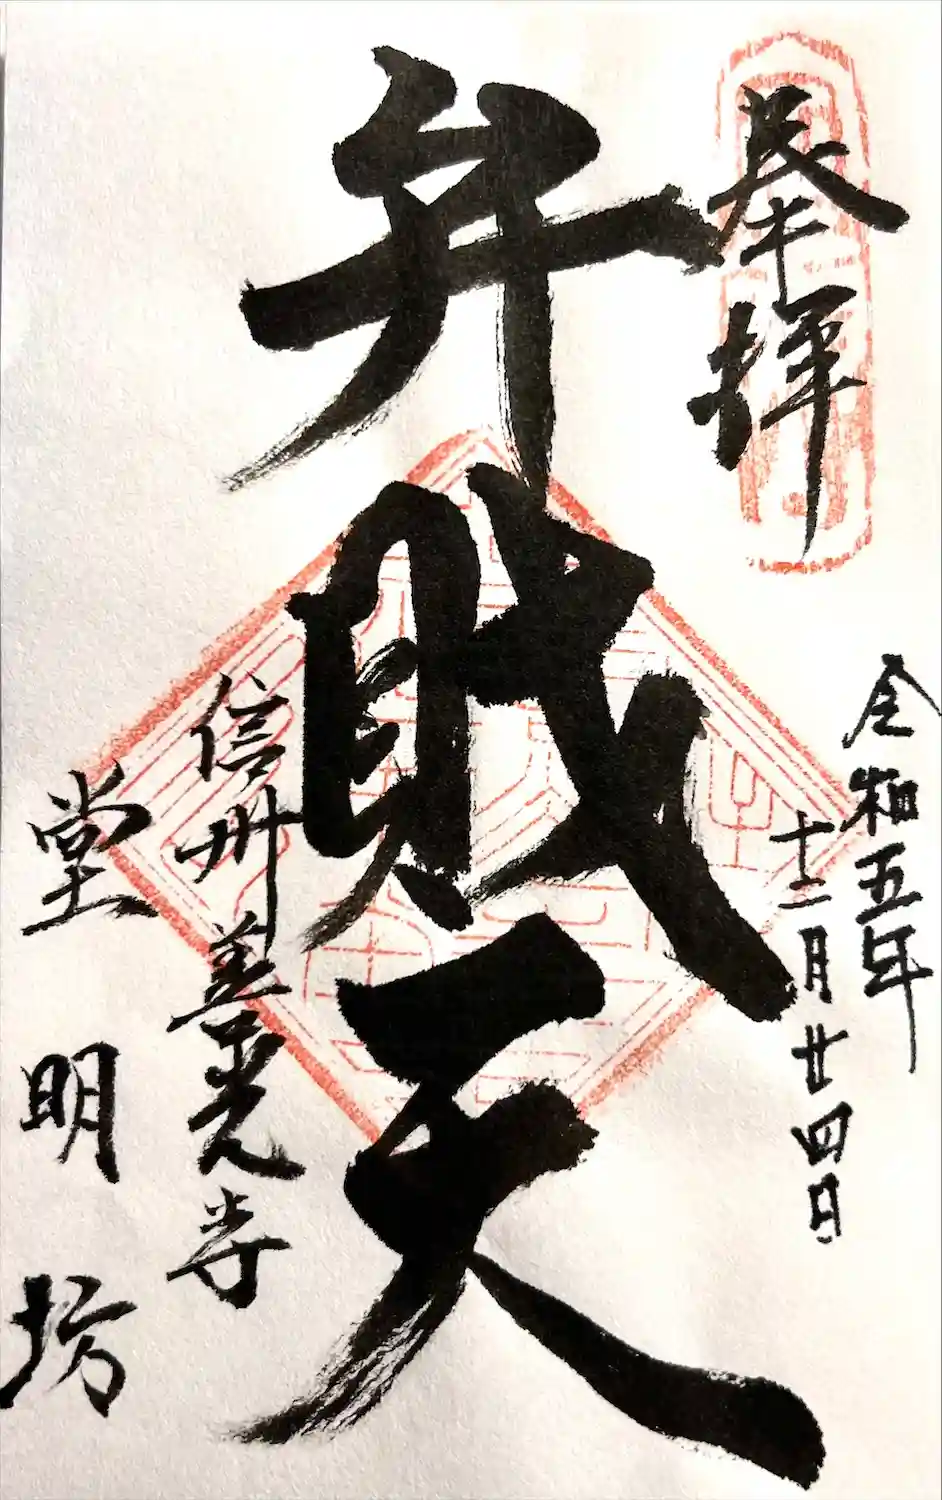 奉拝
令和五年
十二月廿四日
弁財天
信州善光寺
堂明坊